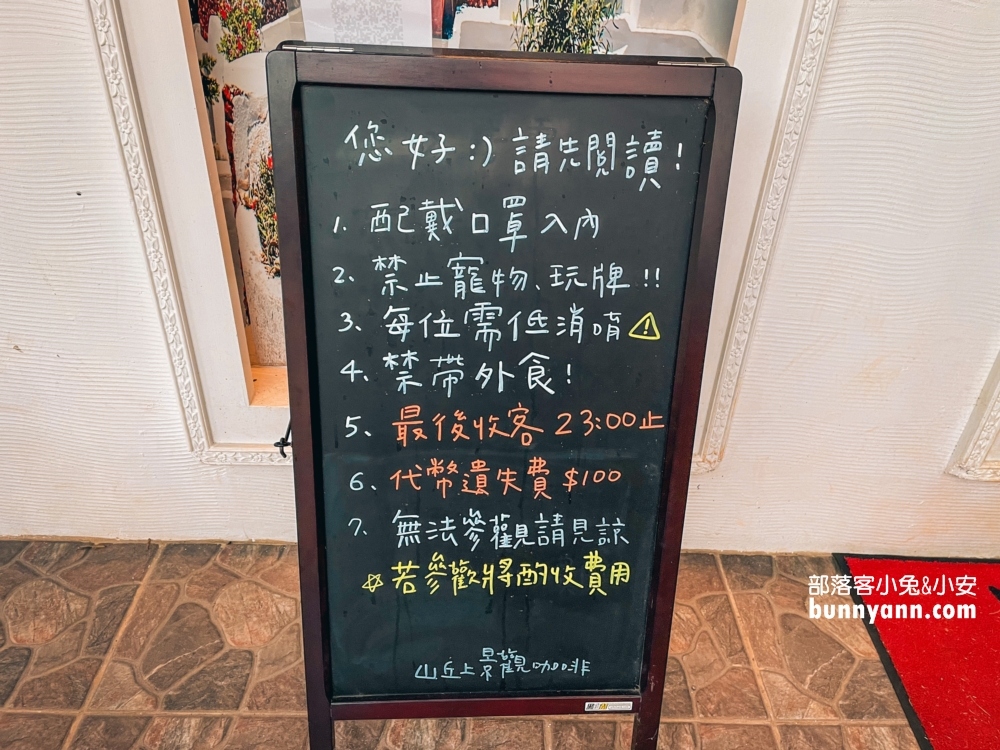 您好:) 請先閱讀!
1. 配戴口罩入內
2. 禁止寵物、玩牌!!
3. 每位需低消唷
4、禁帶外食!
5、最後收客 23:00止
6、代幣遺失費 $100
7. 無法參觀請見諒
☆若參觀將酌收費用
山丘上景觀咖啡
部落客小兔&小安
bunnyann.com